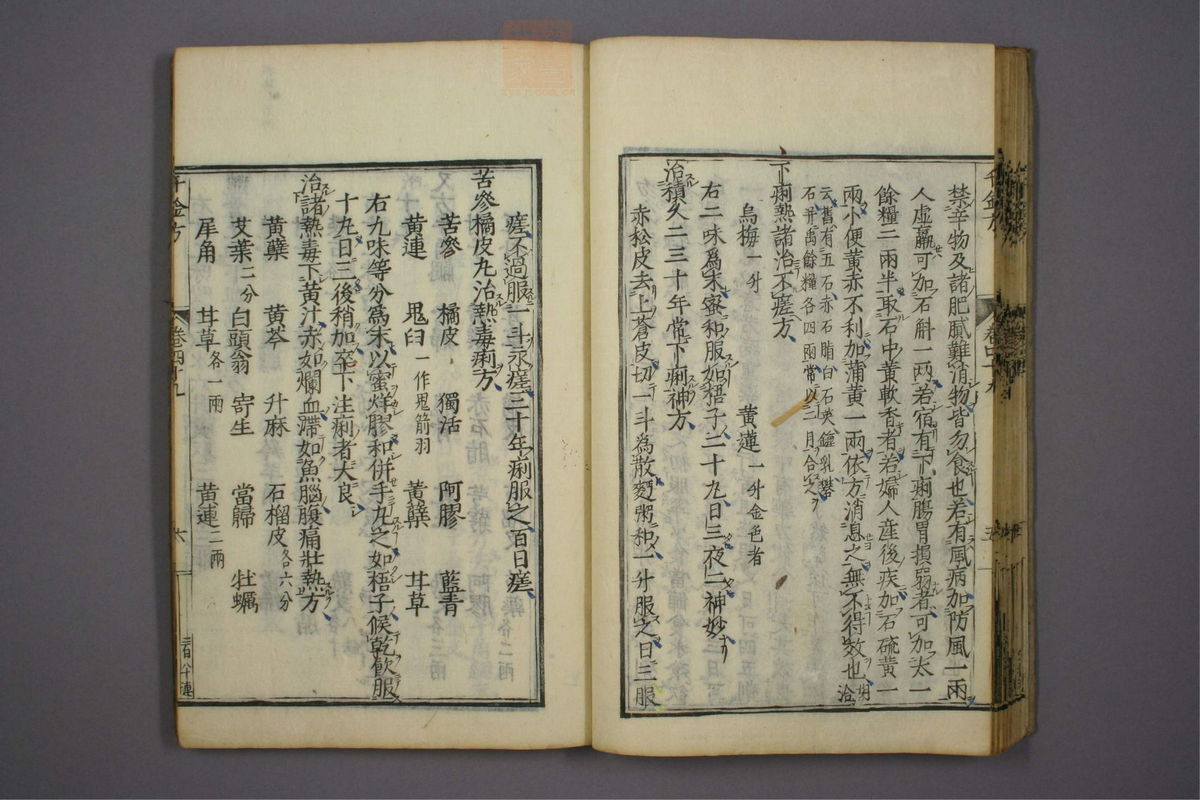 禁辛物及諸肥膩難消物皆勿食也若有風病加防風一兩
人虛羸可加石斛一兩若宿有下痢腸胃損弱者可加太一
餘糧二兩半取石中黃軟香者若婦人産後疾加石硫黃一
兩小便黃赤不利加蒲黃一兩依方消息之無不得效也
云舊有五石赤石脂白石英鐘乳礬
石并禹餘糧各四兩常以三月合之
下痢熱諸治不瘥方
烏梅一升 黃連一升金色者
右二味爲末蜜和服如梧子二十丸日三夜二神妙
治積久二三十年常下痢神方
赤松皮去上蒼皮切一斗為散麪粥和一升服之日三服
瘥不過服一斗永瘥三十年痢服之百日瘥
苦參橘皮丸治熱毒痢方
苦參 橘皮 獨活 阿膠 藍青
黃連 鬼臼一作鬼箭羽 黃蘗 甘草
右九味等分爲末以蜜烊膠和併手丸之如梧子候乾飲服
十丸日三後稍加卒下注痢者大良
治諸熱毒下黃汁赤如爛血滯如魚腦腹痛壯熱方
黃蘗 黃芩 升麻 石榴皮各六分
艾葉二分 白頭翁 寄生 當歸 牡蠣
犀角 甘草各一兩 黃連二兩
千金方 卷四十九 六